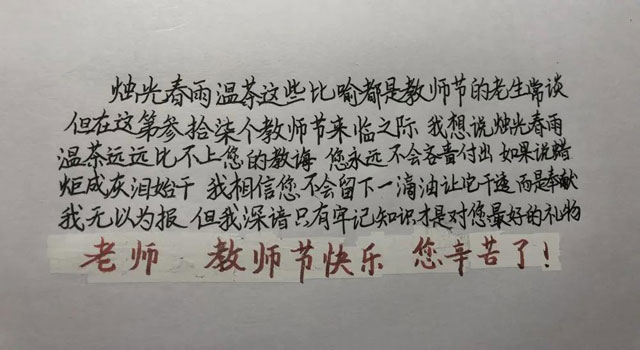 烛光春雨温茶这些比喻都是教师节的老生常谈
但在这第叁拾柒个教师节来临之际 我想说烛光春雨
温茶远远比不上您的教诲 您永远不会吝啬付出 如果说蜡
炬成灰泪始干 我相信您不会留下一滴油让它干透 而是奉献
我无以为报 但我深谙只有牢记知识才是对您最好的礼物
老师 教师节快乐 您辛苦了!